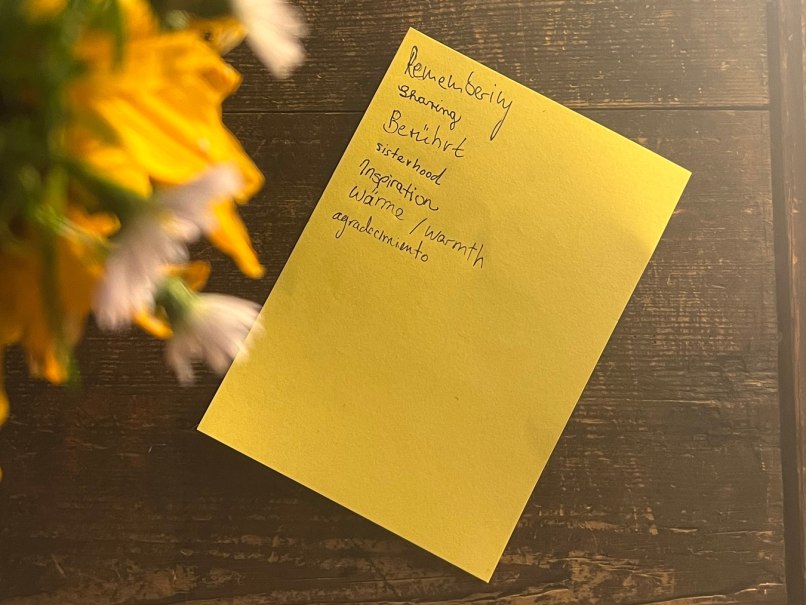 Remembering
sharing
Berührt
sisterhood
Inspiration
Wärme / warmth
agradecimiento